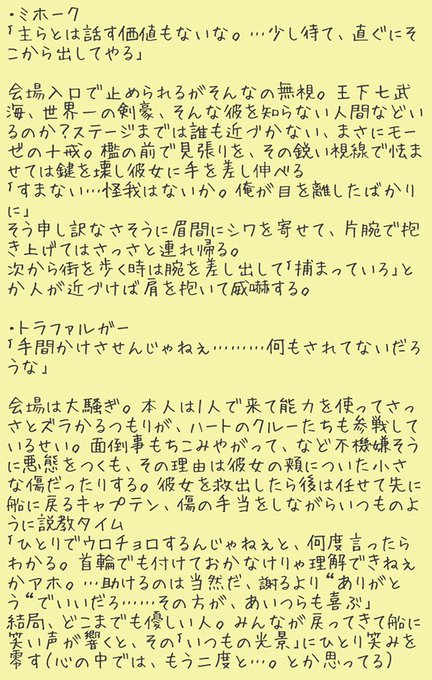 ・ミホーク
「主らとは話す価値もないな。…少し待て、直ぐにそ
こから出してやる」
会場入口で止められるがそんなの無視。王下七武
海、世界一の剣豪、そんな彼を知らない人間などい
るのか？ステージまでは誰も近づかない、まさにモー
ゼの十戒。檻の前で見張りを、その鋭い視線で怯ま
せては鍵を壊し彼女に手を差し伸べる
「すまない…怪我はないか。俺が目を離したばかり
に」
そう申し訳なさそうに眉間にシワを寄せて、片腕で抱
き上げてはさっさと連れ帰る。
次から街を歩く時は腕を差し出して「捕まっていろ」と
か人が近づけば肩を抱いて威嚇する。
・トラファルガー
「手間かけさせんじゃねぇ………何もされてないだろ
うな」
会場は大騒ぎ。本人は1人で来て能力を使ってさっ
さとズラかるつもりが、ハートのクルーたちも参戦して
いるせい。面倒事もちこみやがって、など不機嫌そう
に悪態をつくも、その理由は彼女の頬についた小さ
な傷だったりする。彼女を救出したら後は任せて先に
船に戻るキャプテン、傷の手当をしながらいつものよ
うに説教タイム
「ひとりでウロチョロするんじゃねぇと、何度言ったら
わかる。首輪でも付けておかなけりゃ理解できねぇ
かアホ。…助けるのは当然だ、謝るより“ありがと
う“でいいだろ……その方が、あいつらも喜ぶ」
結局、どこまでも優しい人。みんなが戻ってきて船に
笑い声が響くと、その「いつもの光景」にひとり笑みを
零す(心の中では、もう二度と…。とか思ってる)